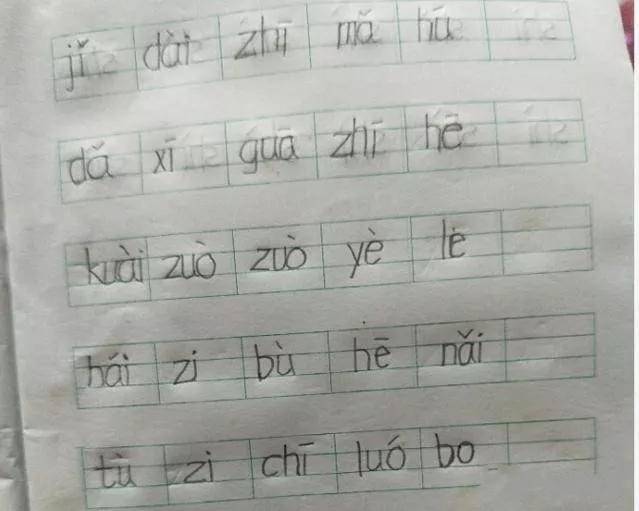 jǐ dài zhī mǎ hú
dǎ xī guā zhī hē
kuài zuò zuò yè lè
hái zi bù hē nǎi
tù zi chī luó bo